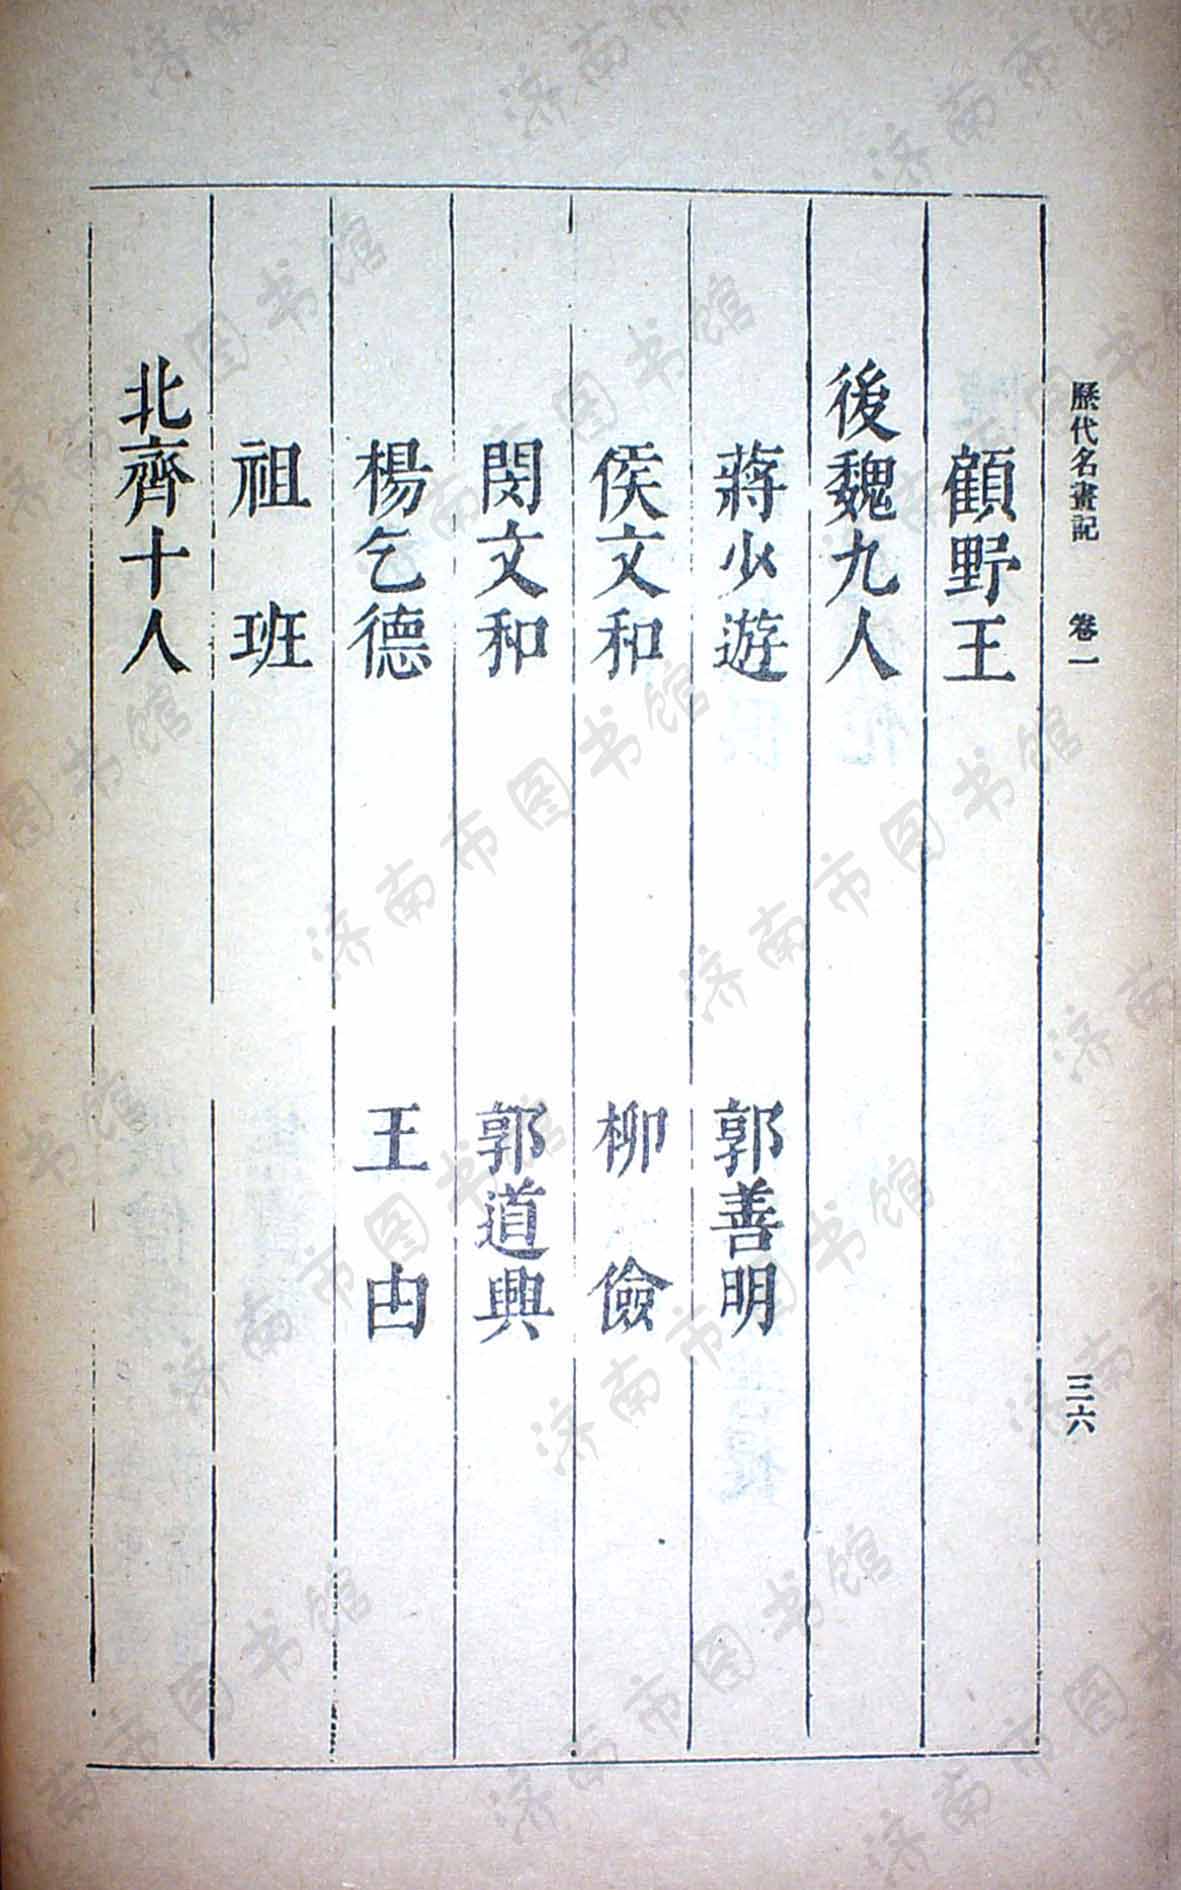 歷代名畫記 卷一 三六
顧野王
後魏九人
蔣少遊 郭善明
侯文和 柳儉
閔文和 郭道興
楊乞德 王由
祖班
北齊十人
济南市图书馆